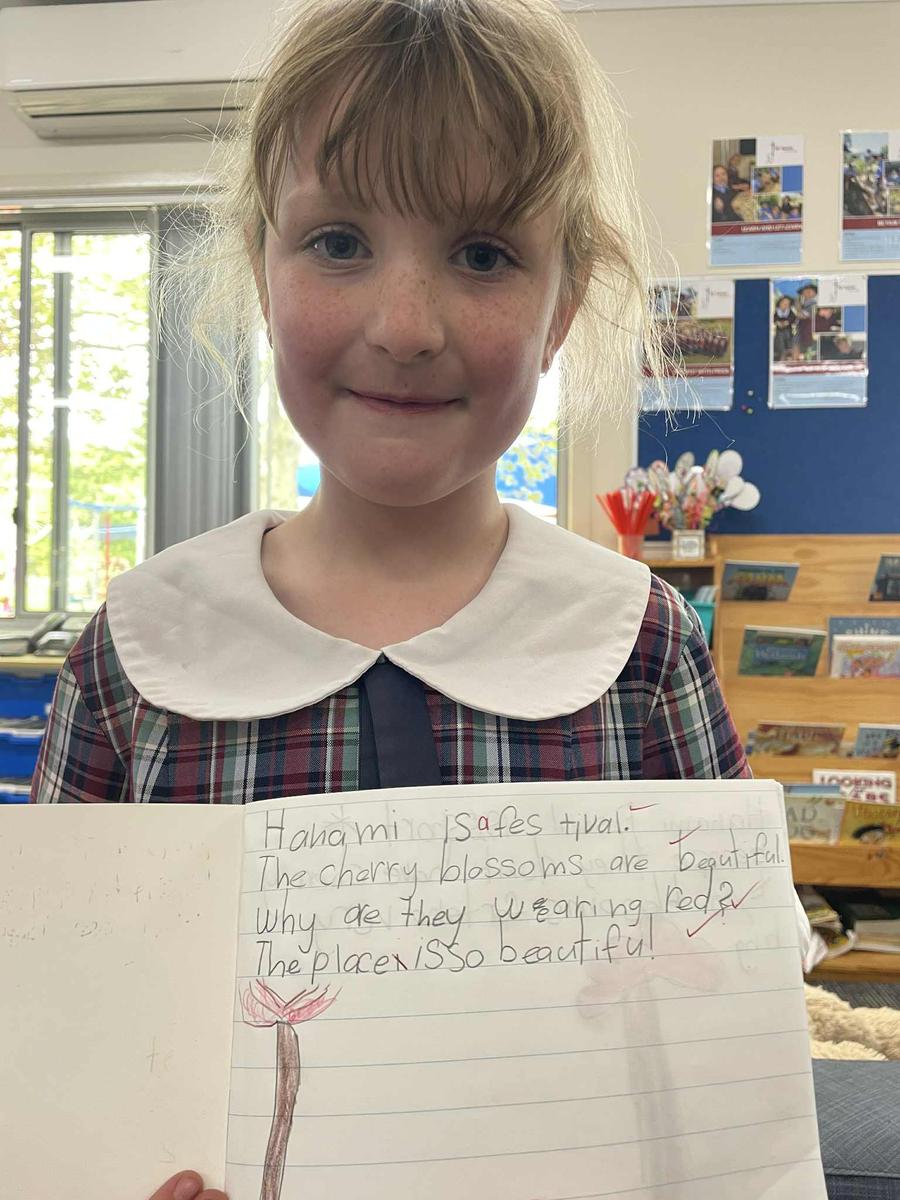 Hanami is a fes tival.
The cherry blossoms are beautiful.
Why are they wearing red?
The place is so beautiful!
LOOKING